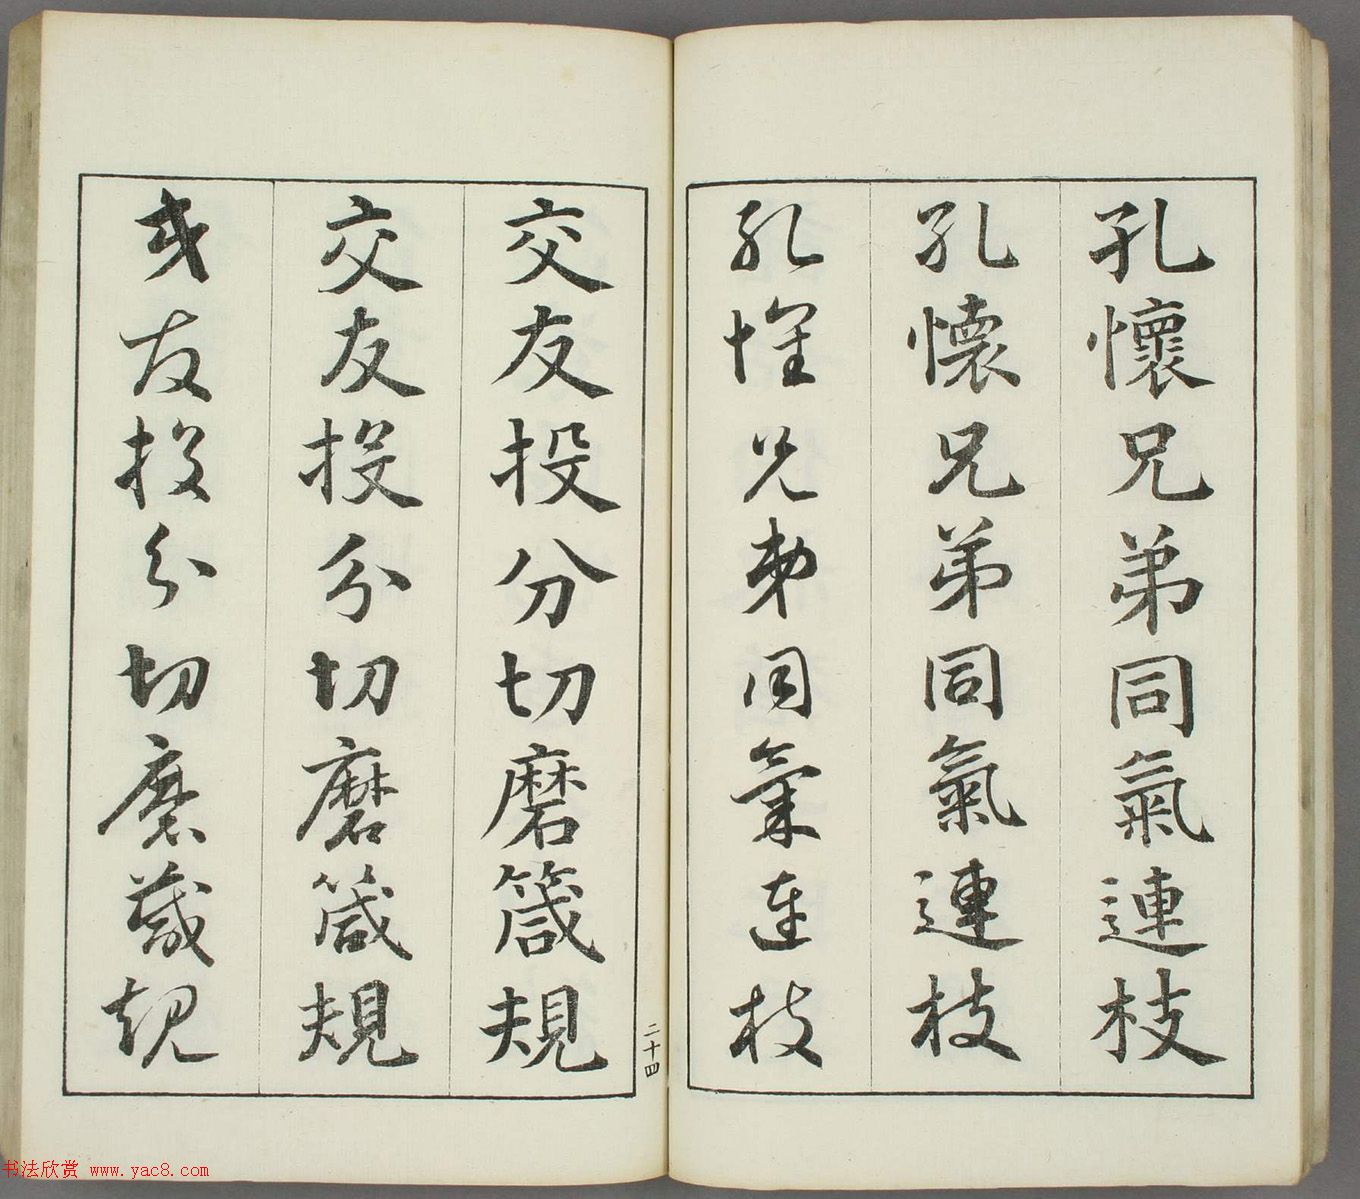 孔懷兄弟同氣連枝
孔懷兄弟同氣連枝
孔懷兄弟同氣連枝
交友投分切磨箴規
交友投分切磨箴規
交友投分切磨箴規
二十四
书法欣赏 www.yac8.com